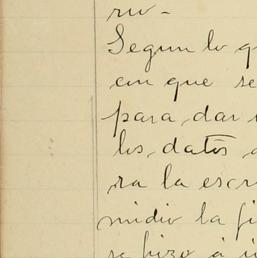 ru-
Segun lo q
con que se
para dar
los datos
ra la escr
midio la fi
se hizo á